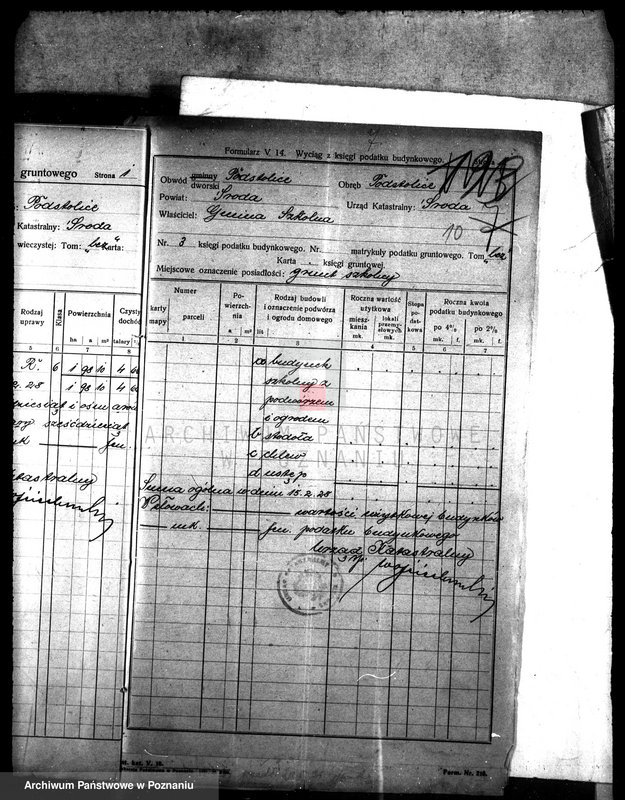 gruntowego Strona 1
Podstolice
Katastralny: Środa
wieczystej: Tom: "bez" Karta:
Rodzaj uprawy
Klasa
Powierzchnia
Czysty dochód
ha a m² talary
5 6 7 8
R. 6 1 98 10 4
2. 28 1 98 10 4
sześćdziesiąt
fen.
Katastralny
Formularz V 14. Wyciąg z księgi podatku budynkowego.
Obwód gminny dworski Podstolice Obręb Podstolice
Powiat: Środa Urząd Katastralny: Środa
Właściciel: Gmina Szkolna
10
7
Nr. 3 księgi podatku budynkowego. Nr. matrykuły podatku gruntowego. Tom "bez"
Karta księgi gruntowej
Miejscowe oznaczenie posiadłości: grunt szkolny
Numer
karty mapy
parceli
Powierzchnia
a m²
Rodzaj budowli i oznaczenie podwórza i ogrodu domowego
lit
Roczna wartość użytkowa
mieszkania mk.
lokali przemysłowych mk.
Stopa podatkowa
Roczna kwota podatku budynkowego
po 4% mk. f.
po 2% mk. f.
1 2 3 4 5 6 7
a budynek
szkolny z
podwórzem
i ogrodem
b stodoła
c chlew
d ustęp
Suma ogólna w dniu 15. 2. 28
wartości użytkowej budynków
mk. fen. podatku budynkowego
Urząd Katastralny
ARCHIWUM PAŃSTWOWE
W POZNANIU
M. kat. V. 10.
Form. Nr. 210.
Archiwum Państwowe w Poznaniu